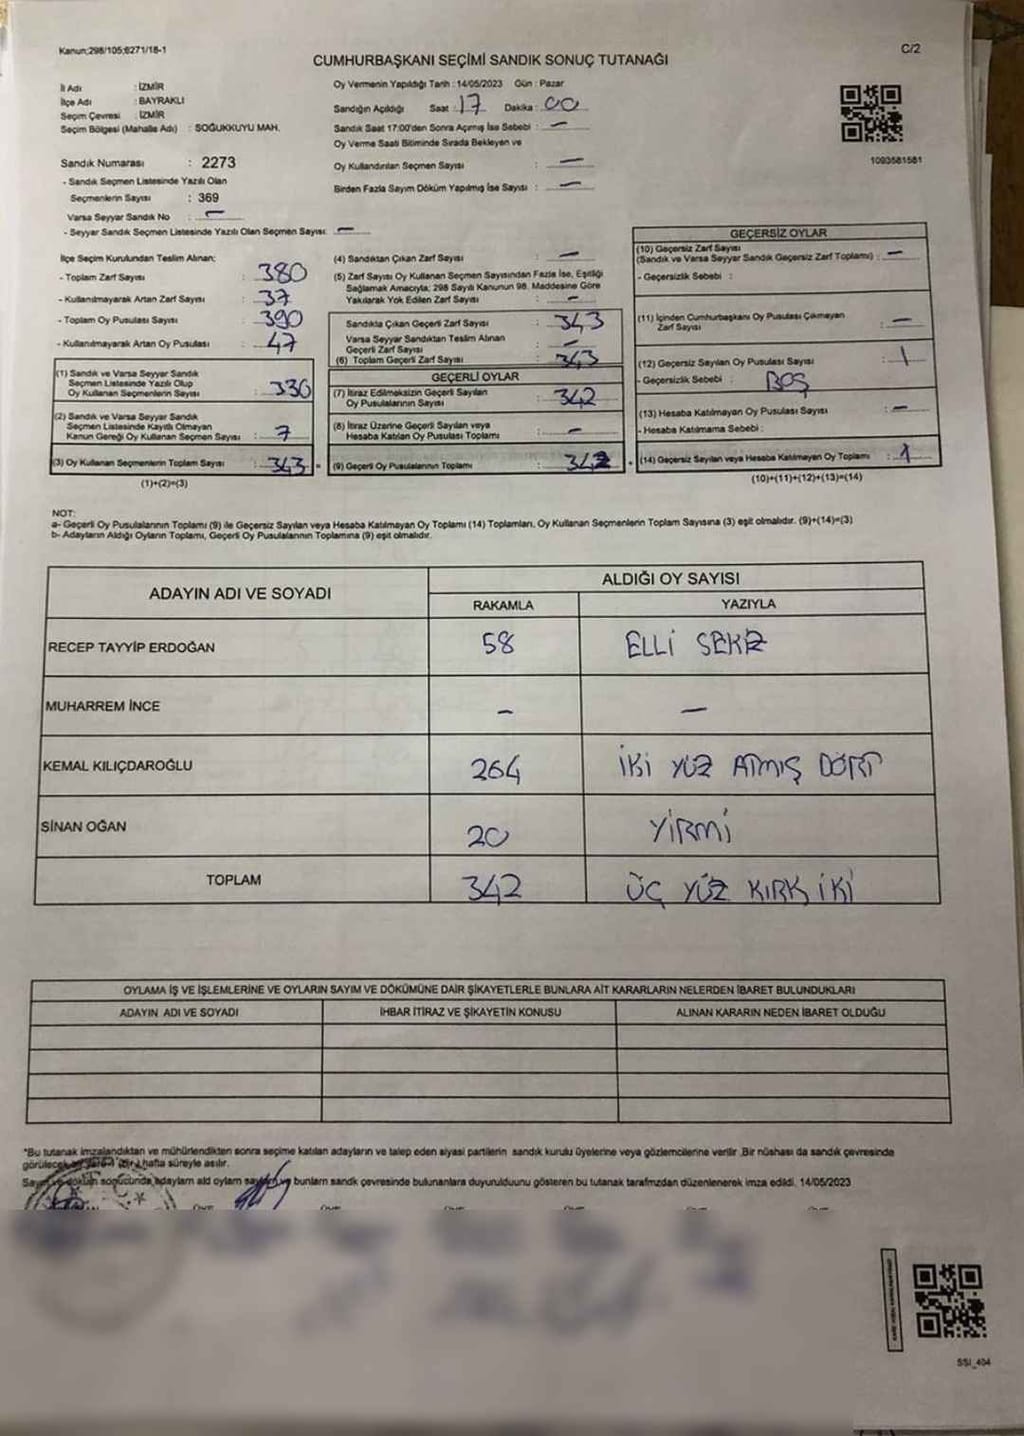 Kanun;298/105;6271/18-1
C/2
CUMHURBAŞKANI SEÇİMİ SANDIK SONUÇ TUTANAĞI
İl Adı : İZMİR
İlçe Adı : BAYRAKLI
Seçim Çevresi : İZMİR
Seçim Bölgesi (Mahalle Adı) : SOĞUKKUYU MAH.
Sandık Numarası : 2273
- Sandık Seçmen Listesinde Yazılı Olan
Seçmenlerin Sayısı : 369
Varsa Seyyar Sandık No : -
- Seyyar Sandık Seçmen Listesinde Yazılı Olan Seçmen Sayısı: -
Oy Vermenin Yapıldığı Tarih : 14/05/2023 Gün : Pazar
Sandığın Açıldığı Saat : 17 Dakika : 00
Sandık Saat 17:00'den Sonra Açımış İse Sebebi : -
Oy Verme Saati Bitiminde Sırada Bekleyen ve
Oy Kullandırılan Seçmen Sayısı : -
Birden Fazla Sayım Döküm Yapılmış İse Sayısı : -
1093581581
İlçe Seçim Kurulundan Teslim Alınan:
- Toplam Zarf Sayısı : 380
- Kullanılmayarak Artan Zarf Sayısı : 37
- Toplam Oy Pusulası Sayısı : 390
- Kullanılmayarak Artan Oy Pusulası : 47
(1) Sandık ve Varsa Seyyar Sandık
Seçmen Listesinde Yazılı Olup
Oy Kullanan Seçmenlerin Sayısı : 336
(2) Sandık ve Varsa Seyyar Sandık
Seçmen Listesinde Kayıtlı Olmayan
Kanun Gereği Oy Kullanan Seçmen Sayısı : 7
(3) Oy Kullanan Seçmenlerin Toplam Sayısı : 343
(1)+(2)=(3)
(4) Sandıktan Çıkan Zarf Sayısı : -
(5) Zarf Sayısı Oy Kullanan Seçmen Sayısından Fazla İse, Eşitliği
Sağlamak Amacıyla; 298 Sayılı Kanunun 98. Maddesine Göre
Yakılarak Yok Edilen Zarf Sayısı : -
Sandıkta Çıkan Geçerli Zarf Sayısı : 343
Varsa Seyyar Sandıktan Teslim Alınan
Geçerli Zarf Sayısı : -
(6) Toplam Geçerli Zarf Sayısı : 343
GEÇERLİ OYLAR
(7) İtiraz Edilmeksizin Geçerli Sayılan
Oy Pusulalarının Sayısı : 342
(8) İtiraz Üzerine Geçerli Sayılan veya
Hesaba Katılan Oy Pusulası Toplamı : -
(9) Geçerli Oy Pusulalarının Toplamı : 342
GEÇERSİZ OYLAR
(10) Geçersiz Zarf Sayısı
(Sandık ve Varsa Seyyar Sandık Geçersiz Zarf Toplamı) : -
- Geçersizlik Sebebi :
(11) İçinden Cumhurbaşkanı Oy Pusulası Çıkmayan
Zarf Sayısı : -
(12) Geçersiz Sayılan Oy Pusulası Sayısı : 1
- Geçersizlik Sebebi : BOŞ
(13) Hesaba Katılmayan Oy Pusulası Sayısı : -
- Hesaba Katılmama Sebebi :
(14) Geçersiz Sayılan veya Hesaba Katılmayan Oy Toplamı : 1
(10)+(11)+(12)+(13)=(14)
NOT:
a- Geçerli Oy Pusulalarının Toplamı (9) ile Geçersiz Sayılan veya Hesaba Katılmayan Oy Toplamı (14) Toplamları, Oy Kullanan Seçmenlerin Toplam Sayısına (3) eşit olmalıdır. (9)+(14)=(3)
b- Adayların Aldığı Oyların Toplamı, Geçerli Oy Pusulalarının Toplamına (9) eşit olmalıdır.
ADAYIN ADI VE SOYADI ALDIĞI OY SAYISI
RAKAMLA YAZIYLA
RECEP TAYYİP ERDOĞAN 58 ELLİ SEKİZ
MUHARREM İNCE - -
KEMAL KILIÇDAROĞLU 264 İKİ YÜZ ATMIŞ DÖRT
SİNAN OĞAN 20 YİRMİ
TOPLAM 342 ÜÇ YÜZ KIRK İKİ
OYLAMA İŞ VE İŞLEMLERİNE VE OYLARIN SAYIM VE DÖKÜMÜNE DAİR ŞİKAYETLERLE BUNLARA AİT KARARLARIN NELERDEN İBARET BULUNDUKLARI
ADAYIN ADI VE SOYADI İHBAR İTİRAZ VE ŞİKAYETİN KONUSU ALINAN KARARIN NEDEN İBARET OLDUĞU
*Bu tutanak imzalandıktan ve mühürlendikten sonra seçime katılan adayların ve talep eden siyasi partilerin sandık kurulu üyelerine veya gözlemcilerine verilir .Bir nüshası da sandık çevresinde
görülecek bir yere hafta süreyle asılır.
sonucunda adayların ald oylam bunlarn sandk çevresinde bulunanlara duyurulduunu gösteren bu tutanak tarafmzdan düzenlenerek imza edildi. 14/05/2023
SSI_404